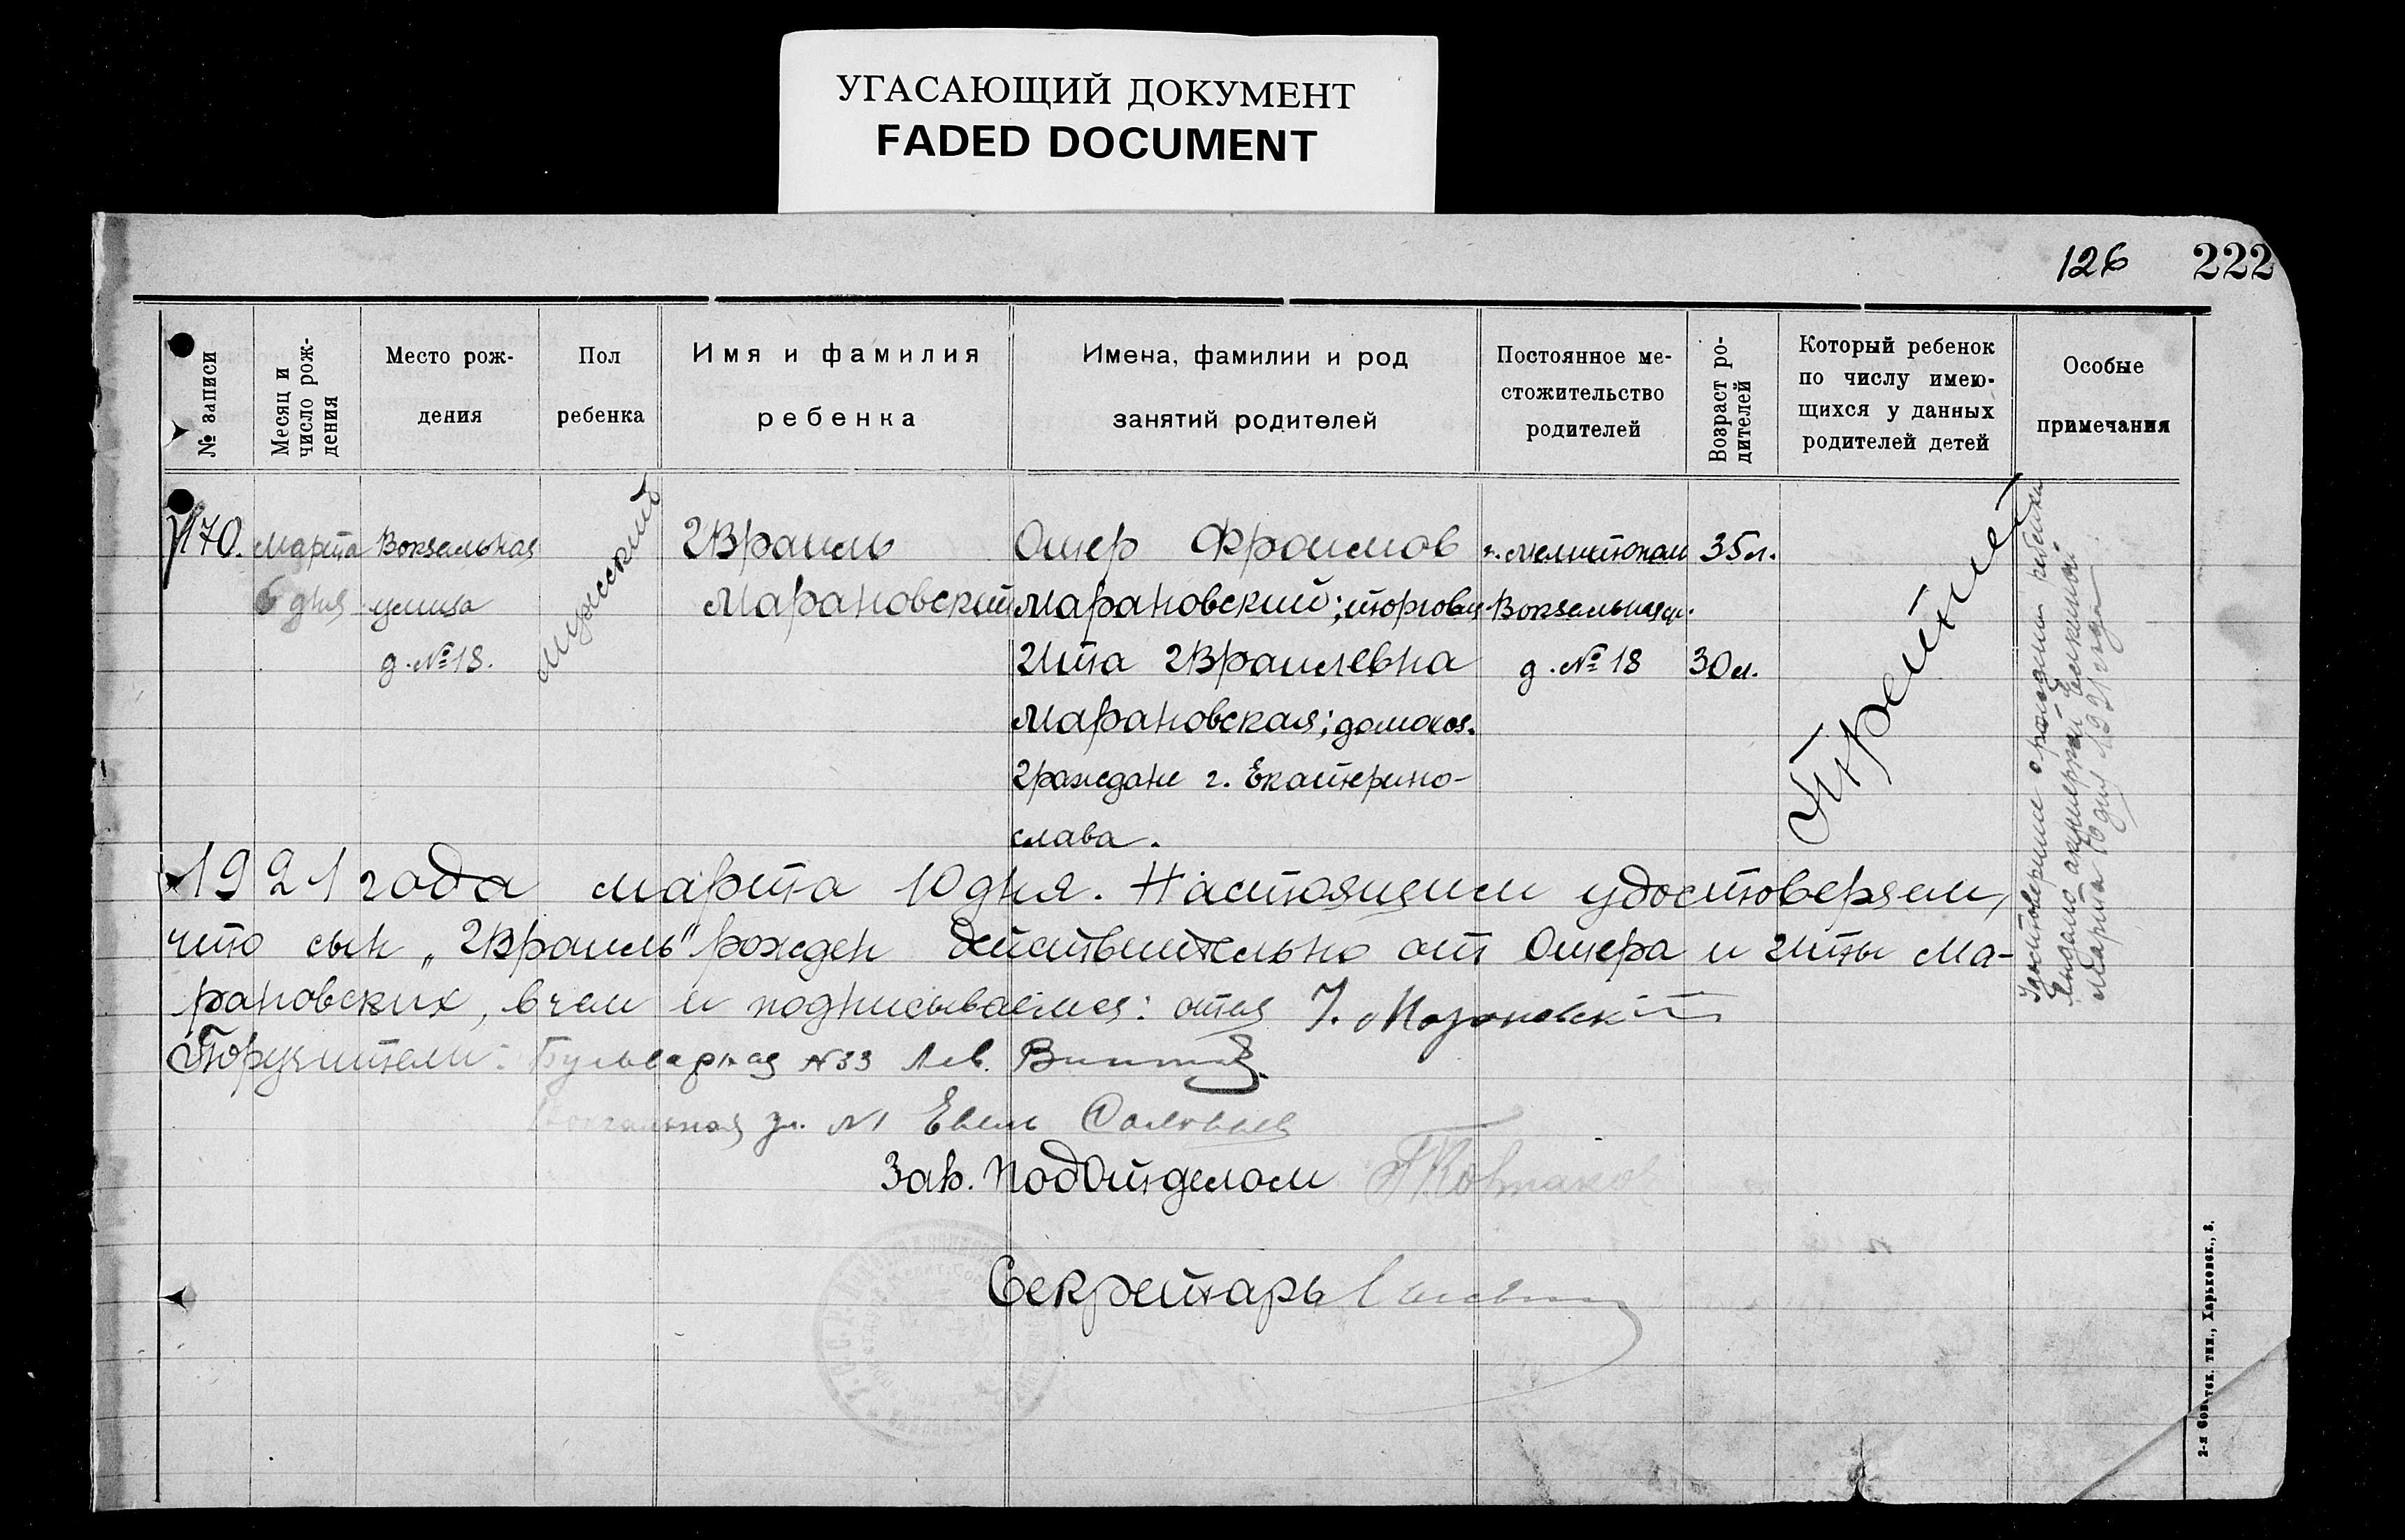 УГАСАЮЩИЙ ДОКУМЕНТ
FADED DOCUMENT
126 222
№ записи
Месяц и
число рож-
дения
Место рож-
дения
Пол
ребенка
Имя и фамилия
ребенка
Имена, фамилии и род
занятий родителей
Постоянное ме-
стожительство
родителей
Возраст ро-
дителей
Который ребенок
по числу имею-
щихся у данных
родителей детей
Особые
примечания
170.
марта
6 дня
Вокзальная
улица
д. №18.
мужский
Израиль
Марановский
Ошер Фроимов
Марановский; торговец
Гита Израилевна
Марановская; домохоз.
Граждане г. Екатерино-
слава.
г. Мелитополь
Вокзальная ул.
д. №18
35 л.
30 л.
Третий
Удостоверение о рождении ребенка
выдано акушеркой
Марта 10 дня 1921 года.
1921 года марта 10 дня. Настоящим удостоверяем,
что сын „Израиль" рожден действительно от Ошера и Гиты Ма-
рановских, в чем и подписываемся: отец
Поручители: Бульварная №33 Лев.
Вокзальная ул. №1 Евель Соловьев
Зав. Подотделом
Секретарь
2-я Советск. тип., Харьковск., 8.